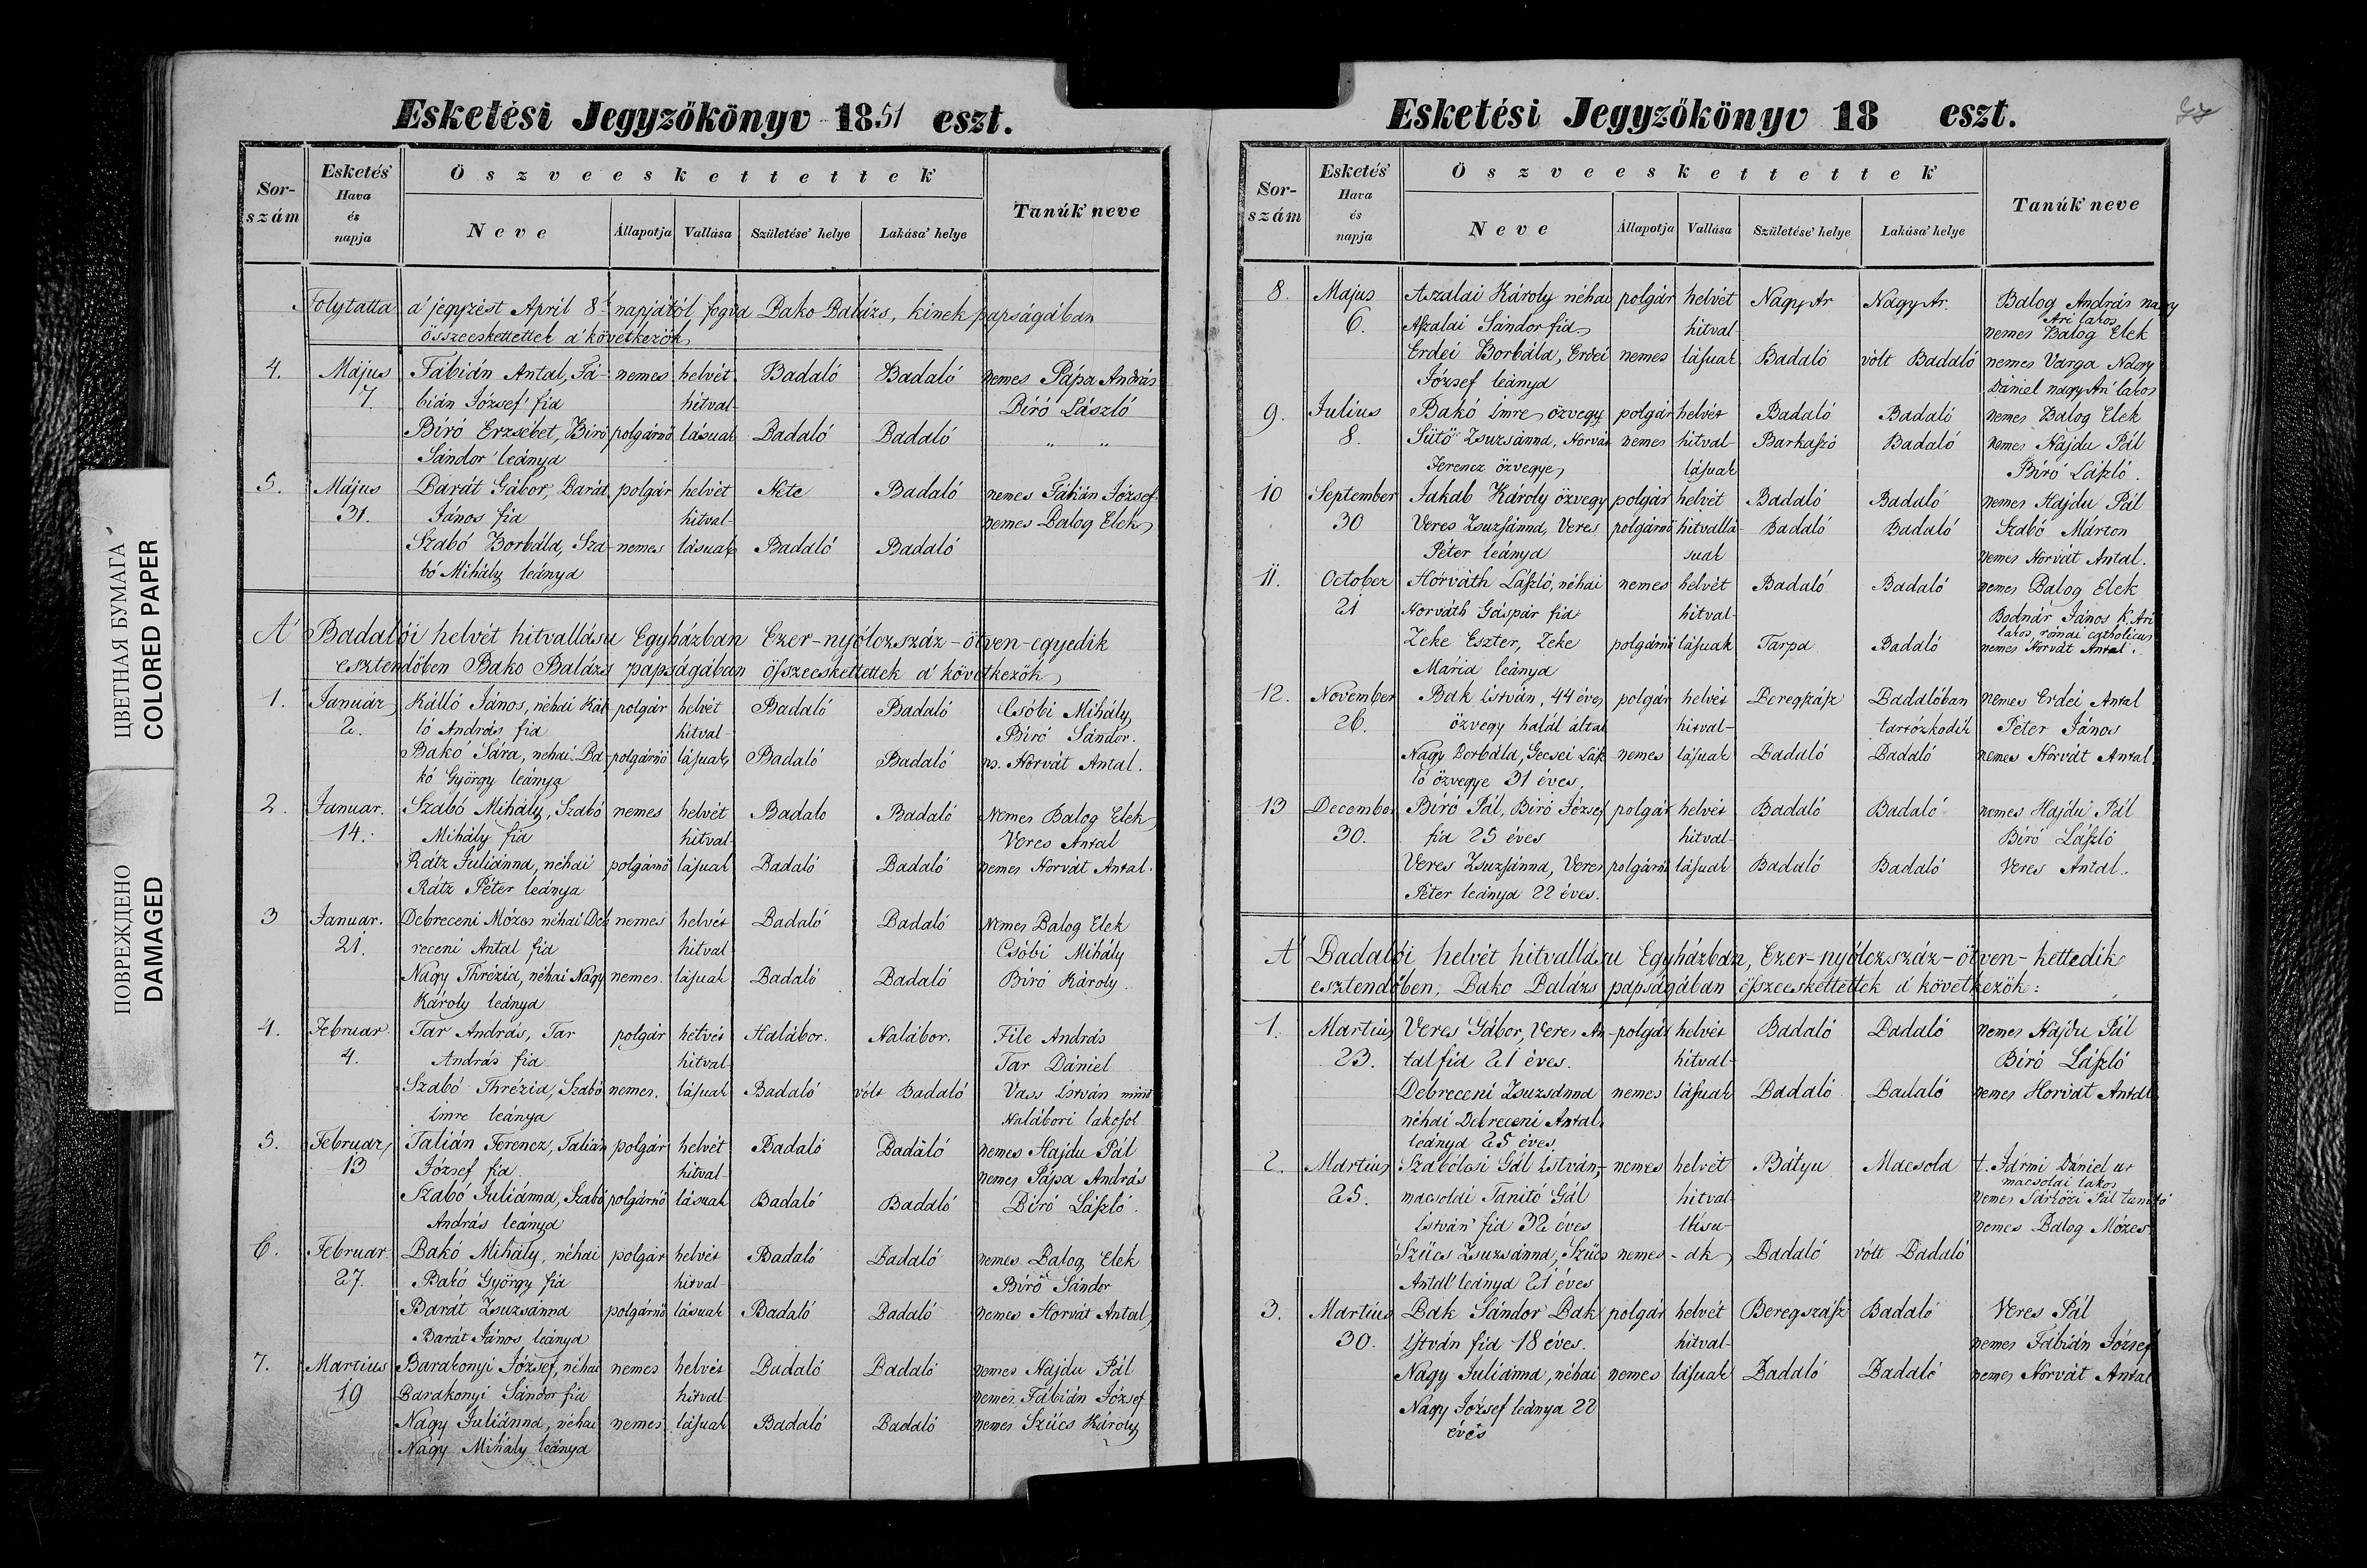 Esketési Jegyzőkönyv 1851 eszt.
Sor-szám
Esketés' Hava és napja
Öszveeskettettek
Neve
Állapotja
Vallása
Születése' helye
Lakása' helye
Tanúk' neve
Folytatta a' jegyzést April 8k napjától fogva Bako Balázs, kinek papságában
összeeskettettek a' következők
4. Május Fábián Antal, Fá- nemes helvét Badaló Badaló nemes Pápa András
7. bián József' fia hitval- Biró László
Biró Erzsébet, Biró polgárnő lásuak Badaló Badaló " "
Sándor' leánya
5. Május Barát Gábor, Barát polgár helvét Kete Badaló nemes Fábián József
31. János fia hitval- nemes Balog Elek
Szabó Borbála, Sza- nemes lásuak Badaló Badaló
bó Mihály leánya
A' Badalói helvét hitvallásu Egyházban Ezer-nyólczszáz-ötven-egyedik
esztendőben Bako Balázs papságában öszeeskettettek a' következők
1. Január Kálló János, néhai Kál polgár helvét Badaló Badaló Csóbi Mihály
2. ló András fia hitval- Biró Sándor.
Bakó Sára, nehai Ba- polgárnő lásuak Badaló Badaló ns. Horvát Antal.
kó György leánya
2. Januar. Szabó Mihály, Szabó nemes helvét Badalo Badaló Nemes Balog Elek
14. Mihály fia hitval- Veres Antal
Rátz Juliánna, néhai polgárnő lásuak Badaló Badaló nemes Horvát Antal.
Rátz Péter leánya
3 Januar. Debreceni Mózes néhai Deb nemes helvét Badaló Badaló Nemes Balog Elek
21. receni Antal fia hitval Csóbi Mihály
Nagy Thrézia, néhai Nagy nemes. lásuak Badaló Badaló Biró Károly
Károly leánya
4. Februar Tar András, Tar polgár helvét Halábor. Halábor. File András
4. András fia hitval- Tar Dániel
Szabó Thrézia, Szabó nemes. lásuak Badaló vólt Badaló Vass István mind
Imre leánya Halábori lakosok
5. Februar Talián Ferencz, Talián polgár helvét Badaló Badaló nemes Hajdu Pál
13 József fia hitval- nemes Pápa András
Szabó Juliánna, Szabó polgárnő lásuak Badaló Badaló Biró László.
András leánya
6. Februar. Bakó Mihály, néhai polgár helvét Badaló Badaló nemes Balog Elek
27. Bakó György fia hitval Biró Sándor
Barát Zsuzsánna polgárnő lásuak Badaló Badaló nemes Horvát Antal
Barát János leánya
7. Martius Barakonyi József, néhai nemes helvét Badaló Badaló nemes Hajdu Pál
19 Barakonyi Sándor fia hitval nemes Fábián József
Nagy Juliánna, néhai nemes lásuak Badaló Badaló nemes Szűcs Károly
Nagy Mihály leánya
Esketési Jegyzőkönyv 18 eszt.
Sor-szám
Esketés' Hava és napja
Öszveeskettettek
Neve
Állapotja
Vallása
Születése' helye
Lakása' helye
Tanúk' neve
8. Majus Aszalai Károly néhai polgár helvét Nagy Ar Nagy Ar. Balog András nagy
6. Aszalai Sándor fia hitval- Ari lakos nemes Balog Elek
Erdei Borbála, Erdei nemes lásuak Badaló vólt Badaló nemes Varga Nagy
József leánya Dániel nagy Ari lakos
9. Julius Bakó Imre özvegy polgár helvét Badaló Badaló nemes Balog Elek
8. Sütő Zsuzsánna, Horvát nemes hitval- Barkaszó Badaló nemes Hajdu Pál
Ferencz özvegye lásuak Biró László.
10 September Jakab Károly özvegy polgár helvét Badaló Badaló nemes Hajdu Pál
30 Veres Zsuzsánna, Veres polgárnő hitvallá- Badaló Badaló Szabó Márton
Péter leánya suak nemes Horvát Antal.
11. October Horváth László, néhai nemes helvét Badaló Badaló nemes Balog Elek
21 Horváth Gáspár fia hitval- Bodnár János K. Ari
lakos, római catholicus
Zeke Eszter, Zeke polgárnő lásuak Tarpa Badaló nemes Horvát Antal.
Mária leánya
12. November Bak István, 44 éves polgár helvét Beregszász Badalóban nemes Erdei Antal
26. özvegy halál által hitval- tartózkodik Péter János
Nagy Borbála, Gecsei Lász nemes lásuak Badaló Badaló nemes Horvát Antal.
ló özvegye 31 éves,
13 December Biró Pál, Biró József polgár helvét Badaló Badaló nemes Hajdu Pál
30. fia 25 éves hitval- Biró László
Veres Zsuzsánna, Veres polgárnő lásuak Badaló Badaló Veres Antal.
Péter leánya 22 éves.
A' Badalói helvét hitvallásu Egyházban, Ezer-nyólczszáz-ötven-kettedik
esztendőben, Bako Balázs papságában öszeeskettettek a' következők:
1. Martius Veres Gábor, Veres An- polgár helvét Badaló Badaló nemes Hajdu Pál
23. tal fia 21 éves. hitval- Biró László
Debreceni Zsuzsanna nemes lásuak Badaló Badaló nemes Horvát Antal
néhai Debreceni Antal
leánya 25 éves
2. Martius Szabólcsi Gál István, nemes helvét Bátyu Macsola t. Jármi Dániel ur
macsolai lakos
25. macsolai Tanitó Gál hitval- nemes Sártözi Pál tanitó
István' fia 32 éves lásu- nemes Balog Mózes
Szűcs Zsuzsánna, Szűcs nemes - ak Badaló vólt Badaló
Antal' leánya 21 éves
3. Martius Bak Sándor Bak polgár helvét Beregszász Badaló Veres Pál
30. István fia 18 éves. hitval- nemes Fábián József
Nagy Juliánna, néhai nemes lásuak Badaló Badaló nemes Horvát Antal
Nagy József leánya 22
éves
ЦВЕТНАЯ БУМАГА
COLORED PAPER
ПОВРЕЖДЕНО
DAMAGED